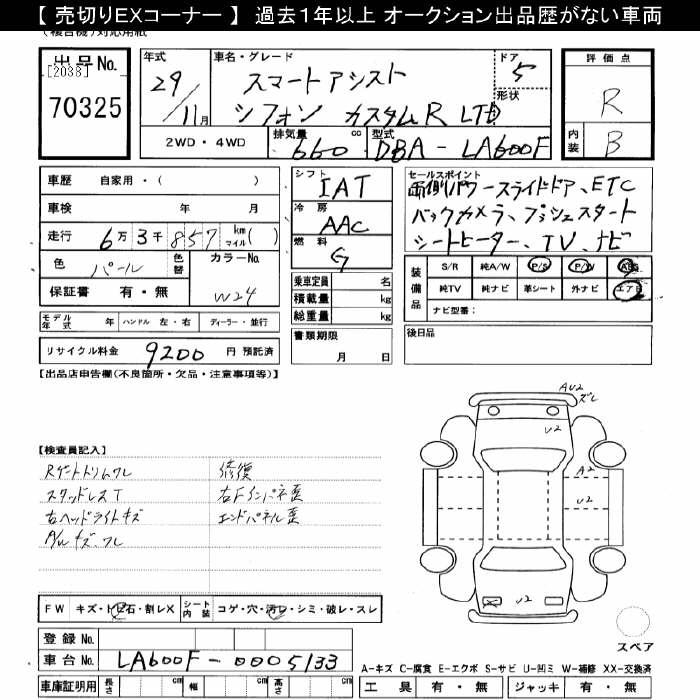 【 売切りEXコーナー 】 過去1年以上 オークション出品歴がない車両
(複合機)対応用紙
出品No.
[2038]
70325
年式
29/11月
車名・グレード
スマートアシスト
シフォン カスタムR LTD
ドア
5
形状
2WD・4WD
排気量
660 cc
型式
DBA-LA600F
評価点
R
内装
B
車歴 自家用・( )
車検 年 月
走行 6万3千857 km マイル( )
色 パール
色替
カラーNo.
W24
保証書 有・無
モデル年式 年 ハンドル 左・右 ディーラー・並行
リサイクル料金 9200 円 預託済
シフト
IAT
冷房
AAC
燃料
G
乗車定員 名
積載量 kg
総重量 kg
書類期限
月 日
セールスポイント
両側パワースライドドア、ETC
バックカメラ、プッシュスタート
シートヒーター、TV、ナビ
装備品
S/R 純A/W P/S P/W ABS
純TV 純ナビ 革シート 外ナビ エアB
ナビ型番:
後日品
【出品店申告欄(不良箇所・欠品・注意事項等)】
【検査員記入】
Rゲートトリムワレ
スタッドレスT
右ヘッドライトキズ
A/Wキズ、ワレ
修復
右Fインパネ歪
エンドパネル歪
AU2
ズレ
U2
A2
U2
U2
FW キズ・トビ石・割レX シート内装 コゲ・穴・汚レ・シミ・破レ・スレ
登録No.
車台No. LA600F-0005133
車庫証明用 長さ cm 幅 cm 高さ cm
スペア
A-キズ C-腐食 E-エクボ S-サビ U-凹ミ W-補修 XX-交換済
工具 有・無 ジャッキ 有・無